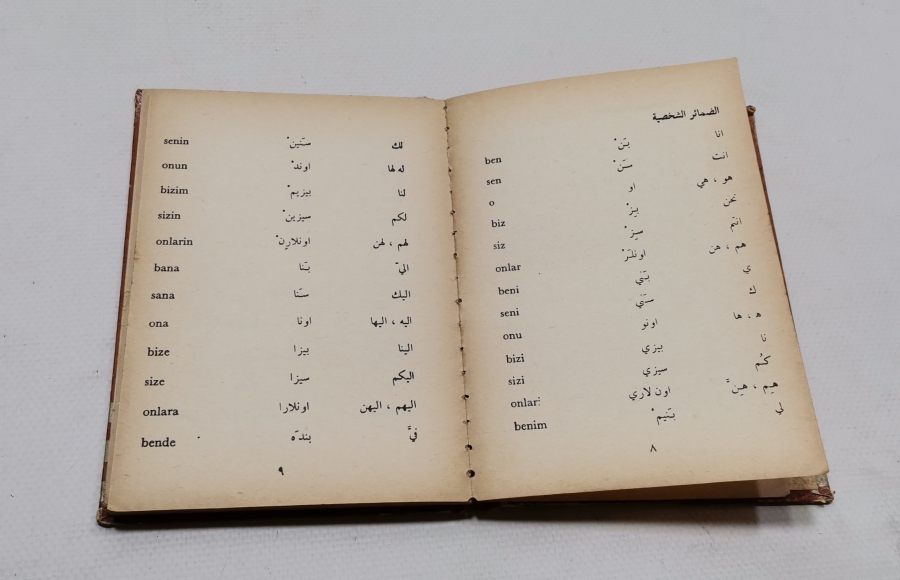 الضمائر الشخصية
انا بَنْ ben
انت سَنْ sen
هو ، هي او o
نحن بيزْ biz
انتم سيزْ siz
هم ، هن اونلَرْ onlar
ي بَني beni
ك سَني seni
ه ، ها اونو onu
نا بيزي bizi
كُم سيزي sizi
هيم ، هينَّ اون لاري onlari
لي بَنيمْ benim
٨
لك سَنينْ senin
له لها اوندْ onun
لنا بيزيمْ bizim
لكم سيزينْ sizin
لهم ، لهن اونلارِنْ onlarin
اليّ بَنا bana
اليك سَنا sana
اليه ، اليها اونا ona
الينا بيزا bize
اليكم سيزا size
اليهم ، اليهن اونلارا onlara
فيَّ بندَه bende
٩